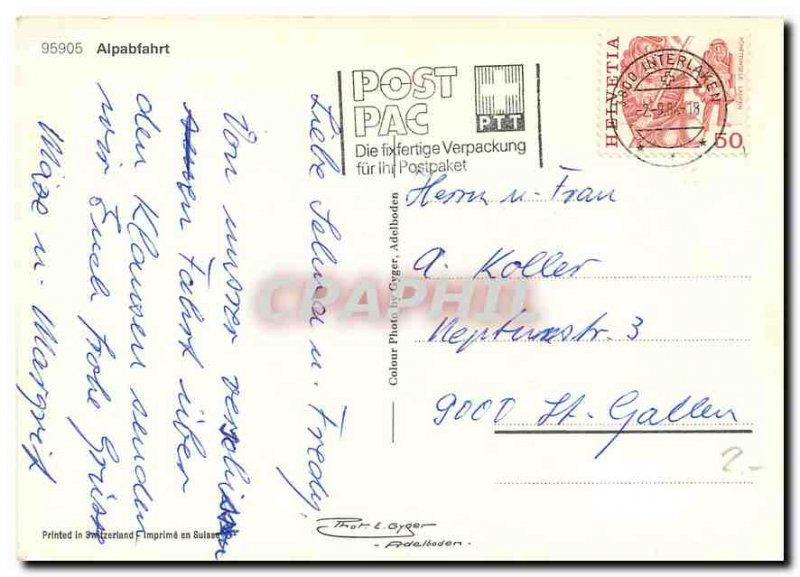 95905 Alpabfahrt
POST
PAC
PTT
Die fixfertige Verpackung
für Ihr Postpaket
HELVETIA
50
3800 INTERLAKEN
Liebe Selma u. Fredy,
Von unserer
Fahrt über
den Klausen senden
wir Euch frohe Grüsse
Margrit
Colour Photo by Gyger, Adelboden
Herrn u. Frau
A. Koller
Neptunstr. 3
9000 St. Gallen
2.-
CPAPHIL
Printed in Switzerland - Imprimé en Suisse
Phot. E. Gyger
- Adelboden -